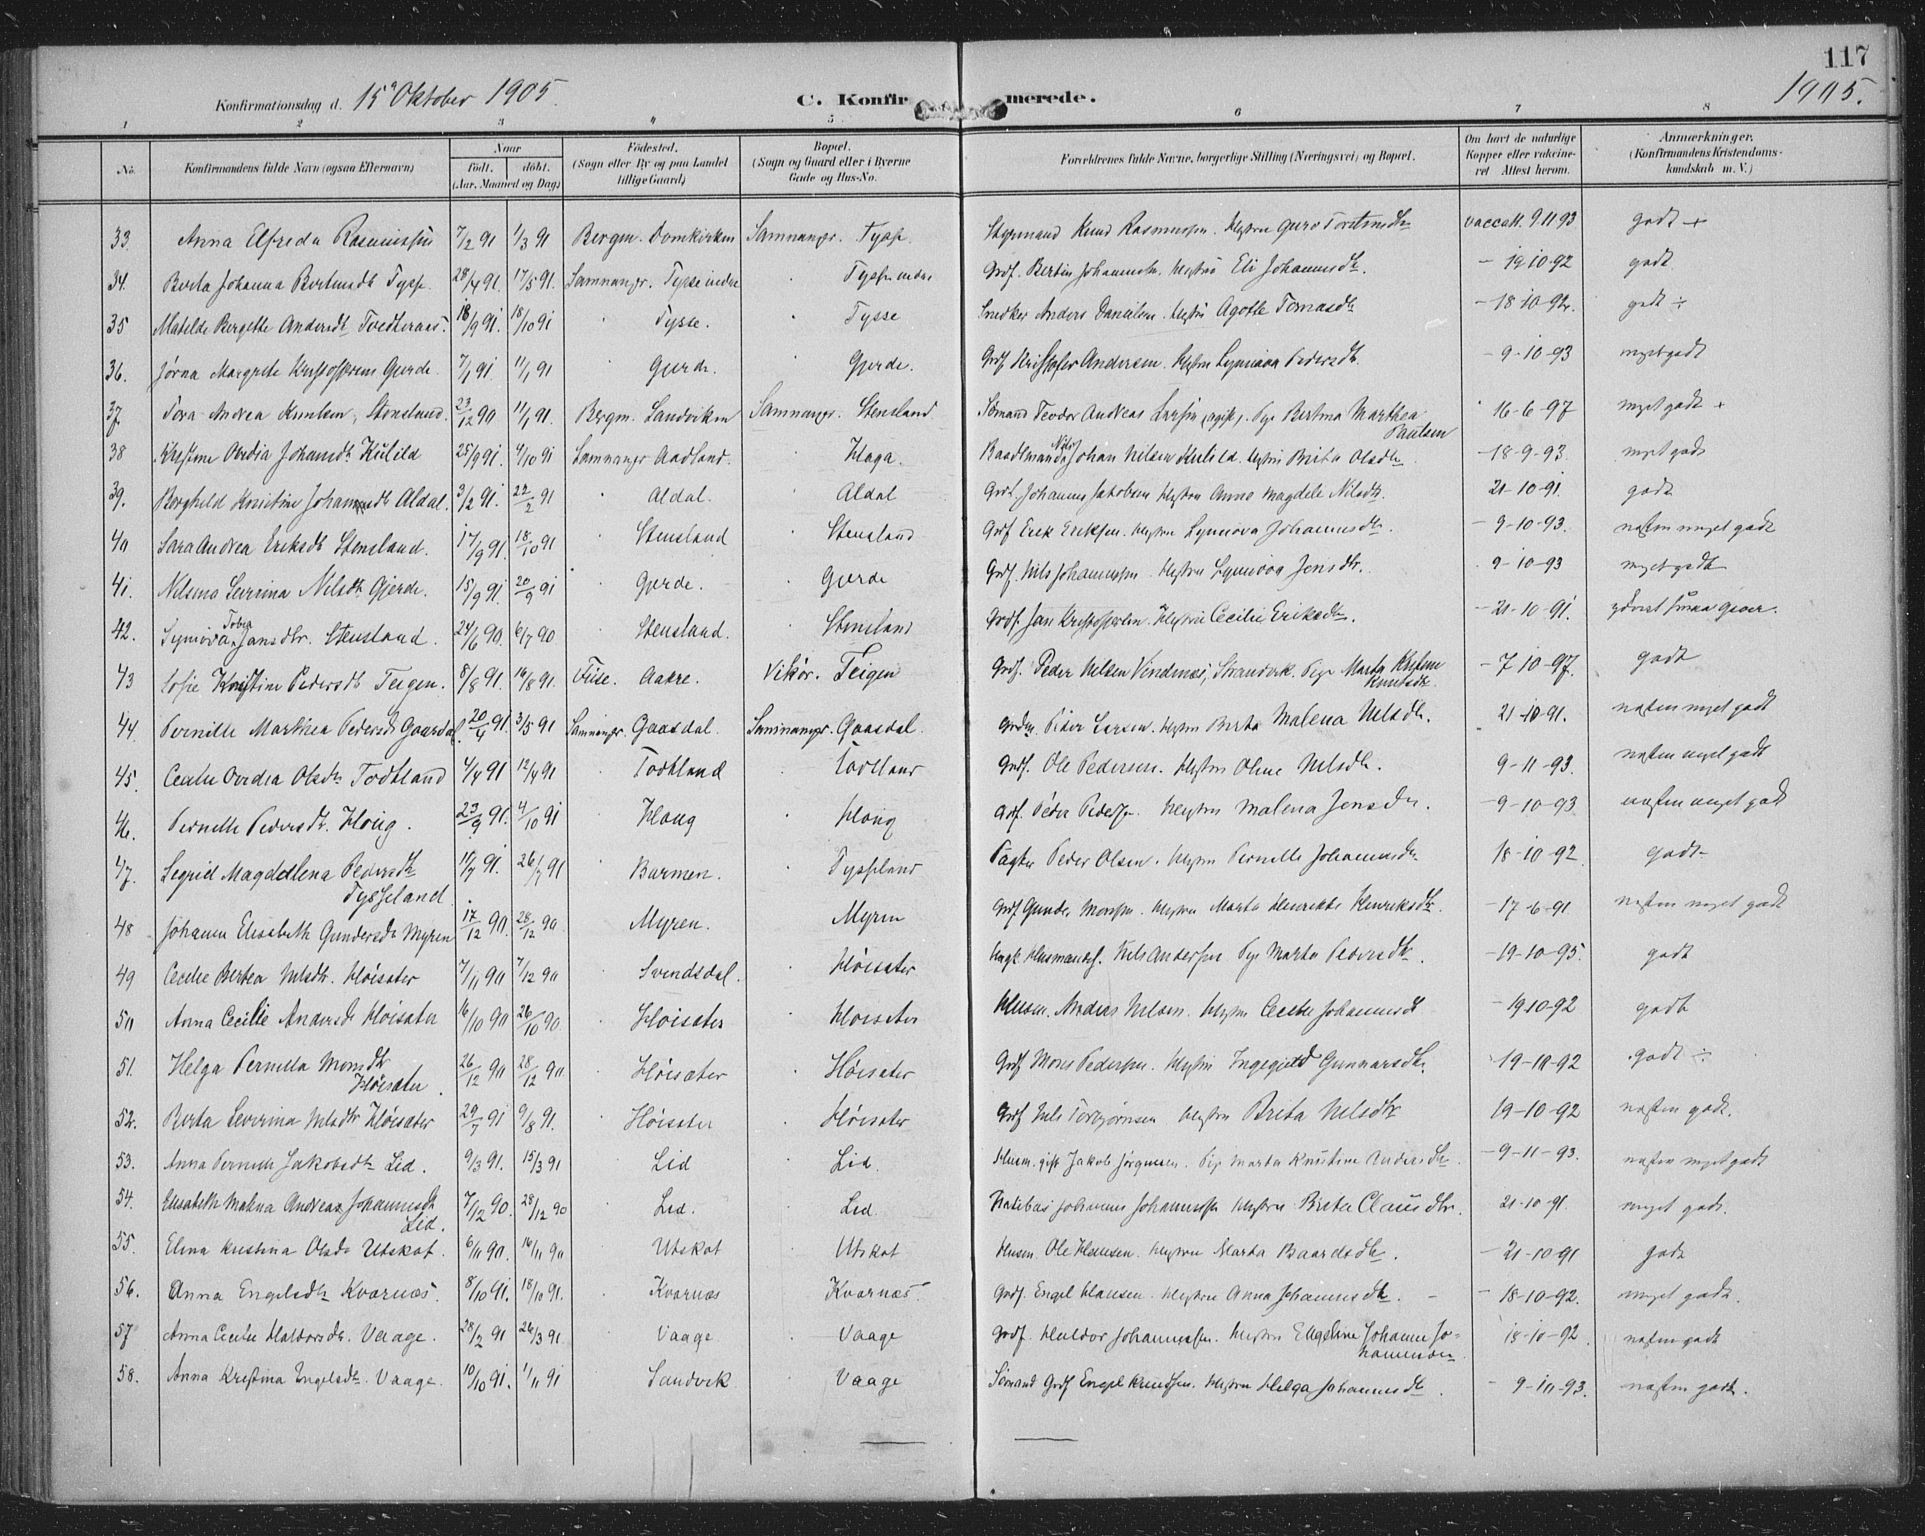 117
Konfirmationsdag d. 15de Oktober 1905.
C. Konfirmerede.
1905.
1 2 3 4 5 6 7 8
No. Konfirmandens fulde Navn (ogsaa Efternavn) Naar født. døbt. (Aar, Maaned og Dag) Fødested. (Sogn eller By og paa Landet tillige Gaard) Bopæl. (Sogn og Gaard eller i Byerne Gade og Hus-No. Forældrenes fulde Navne, borgerlige Stilling (Næringsvei) og Bopæl. Om havt de naturlige Kopper eller vakcineret Attest herom. Anmærkninger. (Konfirmandens Kristendomskundskab m. V.)
33. Anna Elfreda Rasmussen 7/2 91 1/3 91 Bergen. Domkirken Samnanger. Tysse. Styrmand Knud Rasmussen. Hustru Guro Torstensdtr vacc att. 9 11 93 godt +
34. Berta Johanna Bertinsdtr Tysse 28/4 91. 17/5 91. Samnanger. Tysse indre Tysse indre Grdf. Bertin Johannesen. Hustru Eli Johannesdtr. – 19 10-92 godt
35 Matilde Bergette Andersdtr Tvedteraas. 18/9 91. 18/10 91 Tysse. Tysse Snedker Anders Danielsen. Hustru Agothe Tomasdtr – 18-10-92. godt ÷
36. Jørna Margrete Kristoffersen Gjerde. 7/1 91. 11/1 91 Gjerde. Gjerde. Grdf Kristofer Andersen. Hustru Synnøva Pedersdtr. – 9-10-93 meget godt
37 Tora Andrea Knutsen, Stensland. 23/12 90 11/1 91. Bergen. Sandviken Samnanger. Stensland Sømand Teodor Andreas Larsen, ugift, Pige Bertina Marthea Paulsen 16-6-97 meget godt +
38 Kristine Ovidia Johansdtr Külild 25/9 91. 4/10 91 Samnanger Aadland. Haga. Baadtmand Nils Johan Nilsen Kulild. Hustru Brita Olsdtr – 18-9-93. meget godt
39. Borghild Kristine Johannesdtr Aldal. 3/2 91. 22/2 91 Aldal. Aldal Grdf. Johannes Jakobsen Hustru Anna Magdele Nilsdtr. 21-10-91. godt
40 Sara Andrea Eriksdtr Stensland. 17/9 91. 18/10 91 Stensland Stensland Grdf Erik Eriksen. Hustru Synnøva Johannesdtr. – 9-10-93. næsten meget godt
41. Nilsine Severina Nilsdtr Gjerde. 15/9 91. 20/9 91 Gjerde. Gjerde Grdf. Nils Johannessen Hustru Synnøva Jensdtr. 9-10-93 meget godt
42. Synnøva Tobea Jansdtr. Stensland. 24/6 90. 6/7 90 Stensland. Stensland Grdf. Jan Kristoffersen. Hustru Cecilie Eriksdtr. – 21-10-91.
43 Sofie Kristine Pedersdtr Teigen. 8/8 91. 16/8 91. Fuse. Aakre. Vikør. Teigen Grdf. Peder Nilsen Vindenes, Strandvik. Pige Marta Kristine Knutsdtr. – 7-10-97. godt
44. Pernille Marthea Pedersdtr Gaasdal. 20/4 91. 3/5 91 Samnanger. Gaasdal. Samnanger. Gaasdal. Peder Larsen. Hustru Berta Malena Nilsdtr. 21-10-91. næsten meget godt
45. Cecilie Ovidea Olsdtr Todtland 4/4 91 12/4 91 Todtland Todtland Grdf. Ole Pedersen. Hustru Oline Nilsdtr. 9-11-93. næsten meget godt
46. Pernille Pedersdtr. Houg. 23/9 91. 4/10 91 Houg Houg Grdf. Peder Pedersen. Hustru Malena Jensdtr. – 9-10-93 næsten meget godt
47. Sigrid Magdelena Pedersdtr Tysseland 11/7 91. 26/7 91 Barmen. Tysseland Pagter Peder Olsen. Hustru Pernille Johannesdtr 18-10-92. godt
48 Johanna Elisabeth Gundersdtr Myren 17/12 90. 28/12 90 Myren. Myren Grdf Gunder Monsen. Hustru Marta Henrikke Henriksdtr. – 17-6-91 næsten meget godt
49 Cecilie Bertea Nilsdtr. Høisæter 7/11 90 7/12 90 Svendsdal. Høisæter Ungk. Husmandsf. Nils Andersen Pige Marta Pedersdtr. – 19-10-95. godt
50 Anna Cecilie Andersdtr Høisæter 16/10 90 26/10 90. Høisæter Høisæter Husm. Andreas Nilsen. Hustru Cecilie Johannesdtr – 19 10-92 godt
51. Helga Pernilla Monsdtr Høisæter. 26/12 90 28/12 90 Høisæter Høisæter Grdf Mons Pedersen. Hustru Ingegjerd Gunnarsdtr. 19-10-92 godt ÷
52. Berta Severina Nilsdtr Høisæter 29/7 91 9/8 91. Høisæter Høisæter Grdf Nils Torbjørnsen Hustru Brita Nilsdtr 19-10-92 næsten godt.
53. Anna Pernille Jakobsdtr Lid. 9/3 91. 15/3 91 Lid Lid. Husm. gift Jakob Jørgensen. Pige Marta Kristine Andersdtr. – 9-11-93. næsten meget godt
54. Elisabeth Malena Andrea Johannesdtr Lid. 7/12 90. 28/12 90 Lid. Lid Johannes Johannessen Hustru Brita Clausdtr. 21-10-91. meget godt.
55. Elena Kristina Olsdtr Utskot. 6/11 90. 16/11 90 Utskot Utskot Husm. Ole Hansen. Hustru Marta Baardsdtr. – 21-10-91 godt
56. Anna Engelsdtr Kvernæs. 8/10 91. 18/10 91. Kvernæs Kvernæs. Grdf. Engel Hansen. Hustru Anna Johannesdtr. – – 18-10-92. meget godt.
57 Anna Cecilie Haldorsdtr. Vaage. 28/2 91 26/3 91. Vaage Vaage Grdf. Haldor Johannessen. Hustru Engeline Johanne Johannesen 18-10-92. næsten godt
58. Anna Kristina Engelsdtr. Vaage. 10/10 91. 1/11 91 Sandvik Vaage Sømand Grdf Engel Knudsen. Hustru Helga Johannesdtr. – 9-10-93. næsten godt.